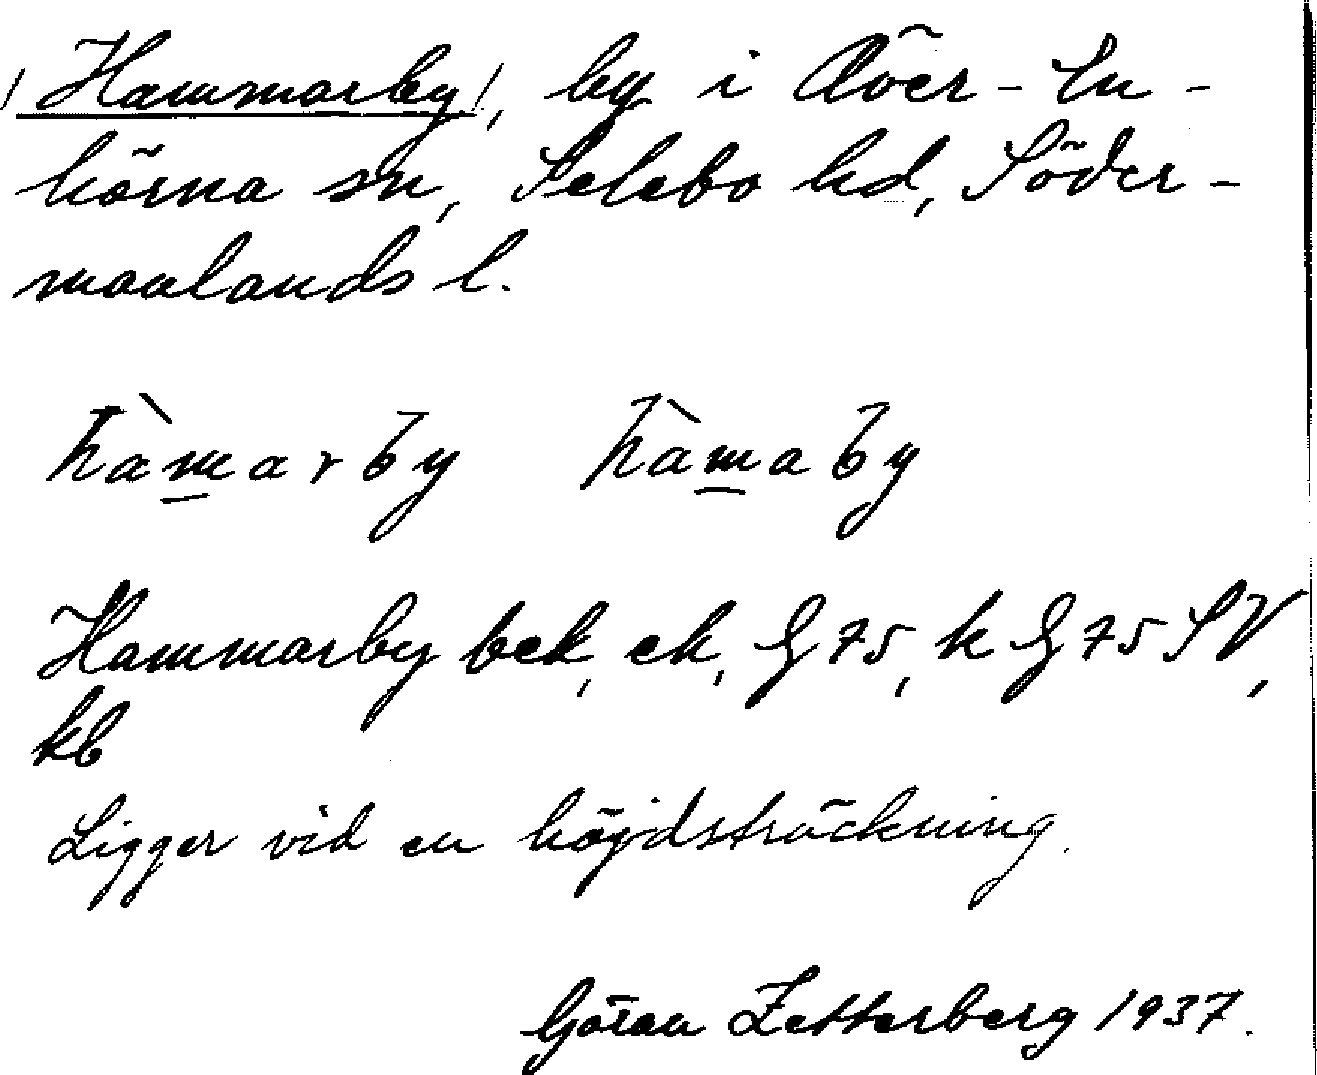 /Hammarby/, by i Över-En-
hörna sn, Selebo hd, Söder-
manlands l.
hàmarby hàmaby
Hammarby bek, ek, G 75, k G 75 SV,
kb
Ligger vid en höjdsträckning.
Göran Zetterberg 1937.